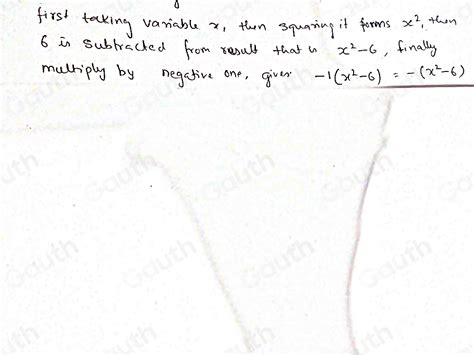 first taking variable x, then squaring it forms x², then
6 is subtracted from result that is x²-6, finally
multiply by negative one, gives -1(x²-6) = -(x²-6)
Gauth